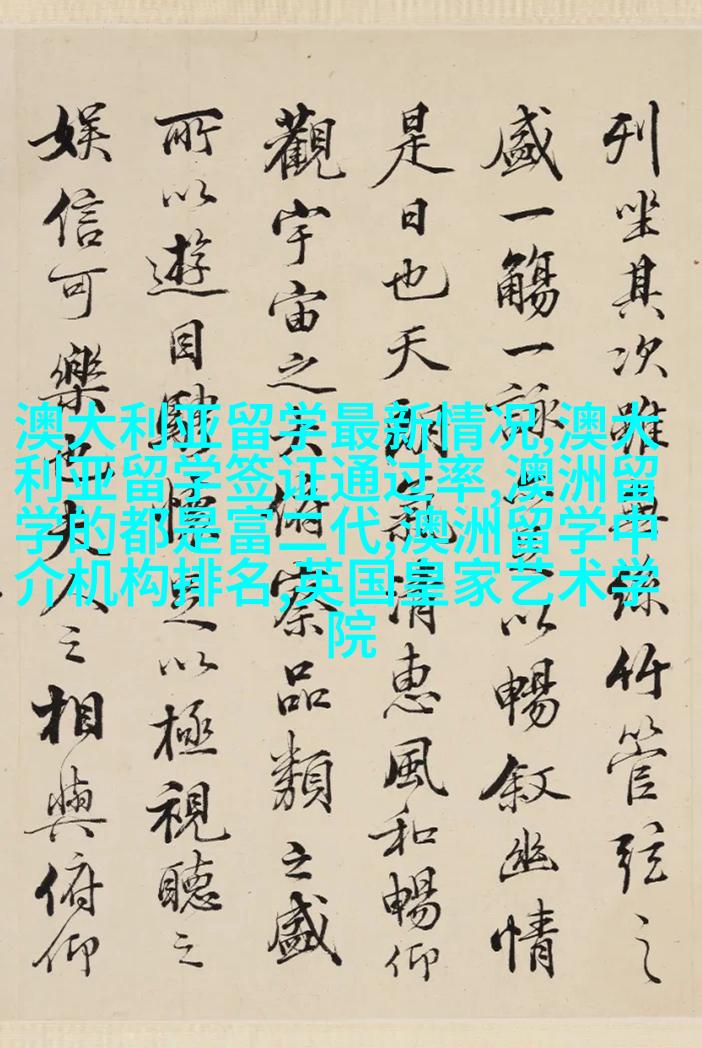 列坐其次雖無絲竹管弦之
盛一觴一詠亦足以暢叙幽情
是日也天朗氣清惠風和暢仰
觀宇宙之大俯察品類之盛
所以遊目騁懷足以極視聽之
娛信可樂也夫人之相與俯仰
澳大利亚留学最新情况,澳大
利亚留学签证通过率,澳洲留
学的都是富二代,澳洲留学中
介机构排名,英国皇家艺术学
院